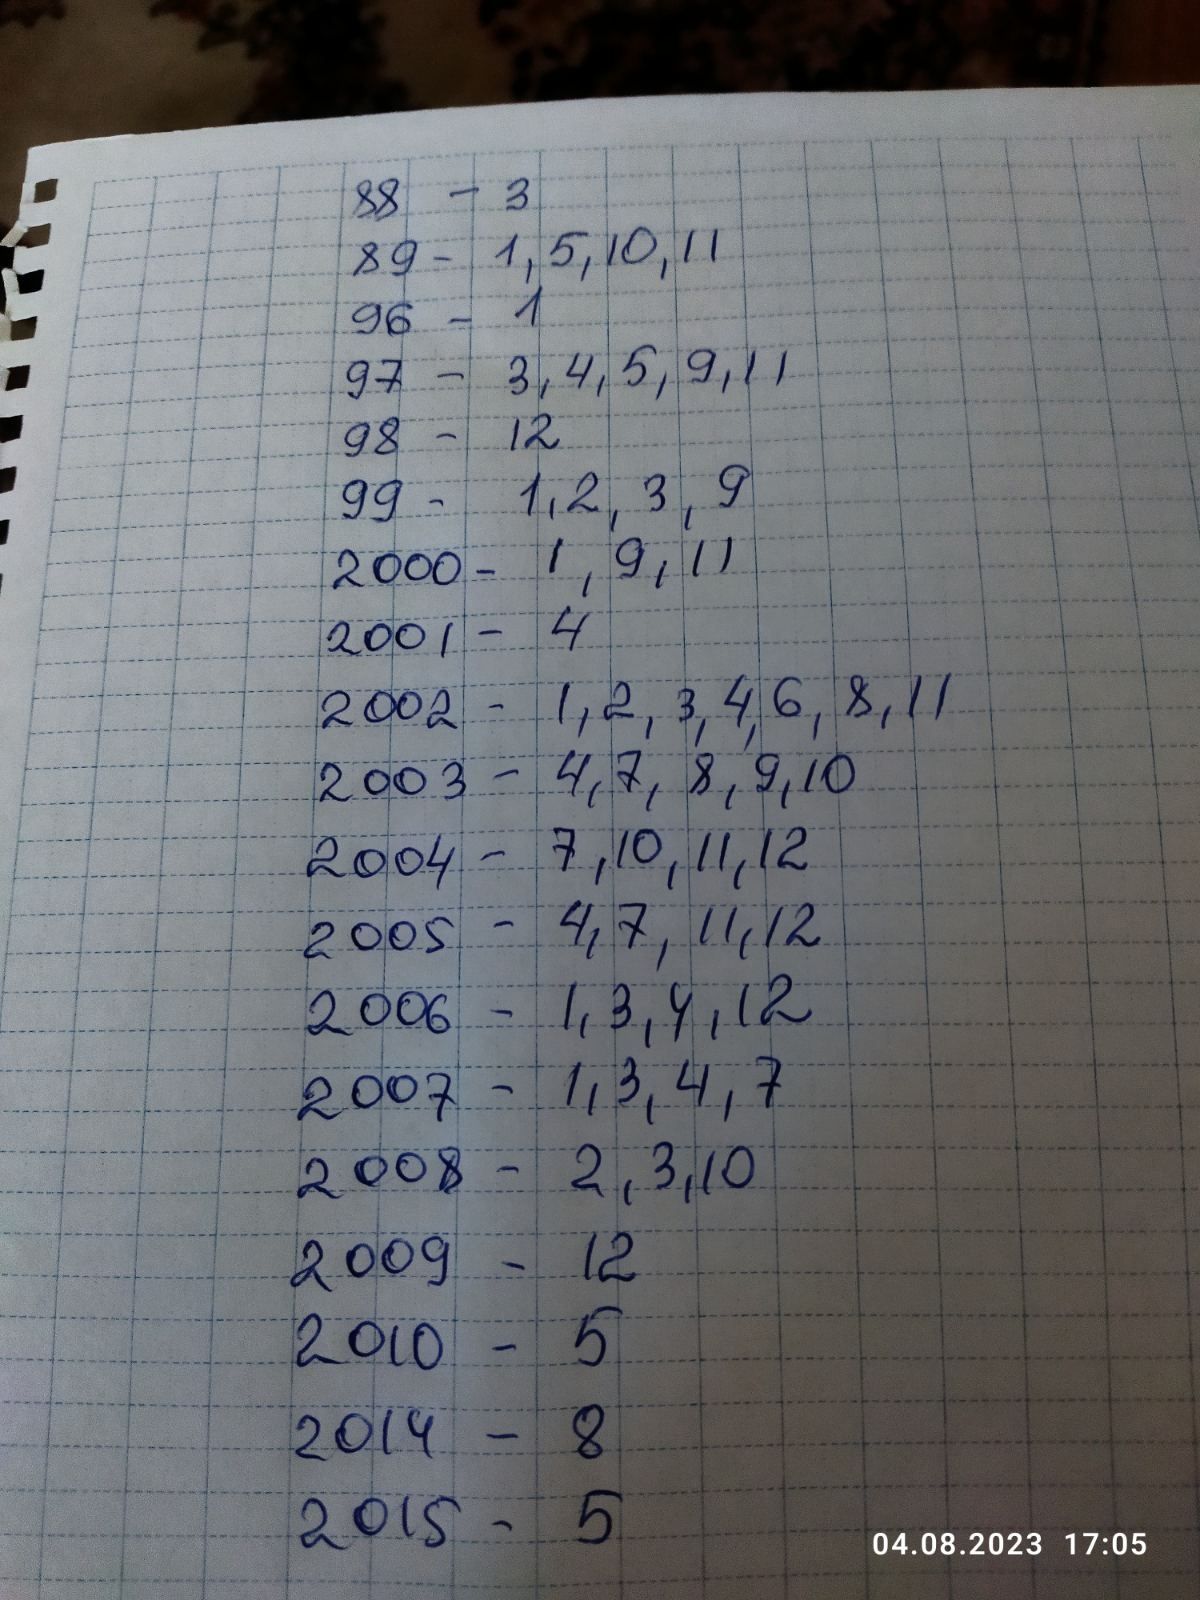 88 - 3
89 - 1, 5, 10, 11
96 - 1
97 - 3, 4, 5, 9, 11
98 - 12
99 - 1, 2, 3, 9
2000 - 1, 9, 11
2001 - 4
2002 - 1, 2, 3, 4, 6, 8, 11
2003 - 4, 7, 8, 9, 10
2004 - 7, 10, 11, 12
2005 - 4, 7, 11, 12
2006 - 1, 3, 4, 12
2007 - 1, 3, 4, 7
2008 - 2, 3, 10
2009 - 12
2010 - 5
2014 - 8
2015 - 5
04.08.2023 17:05